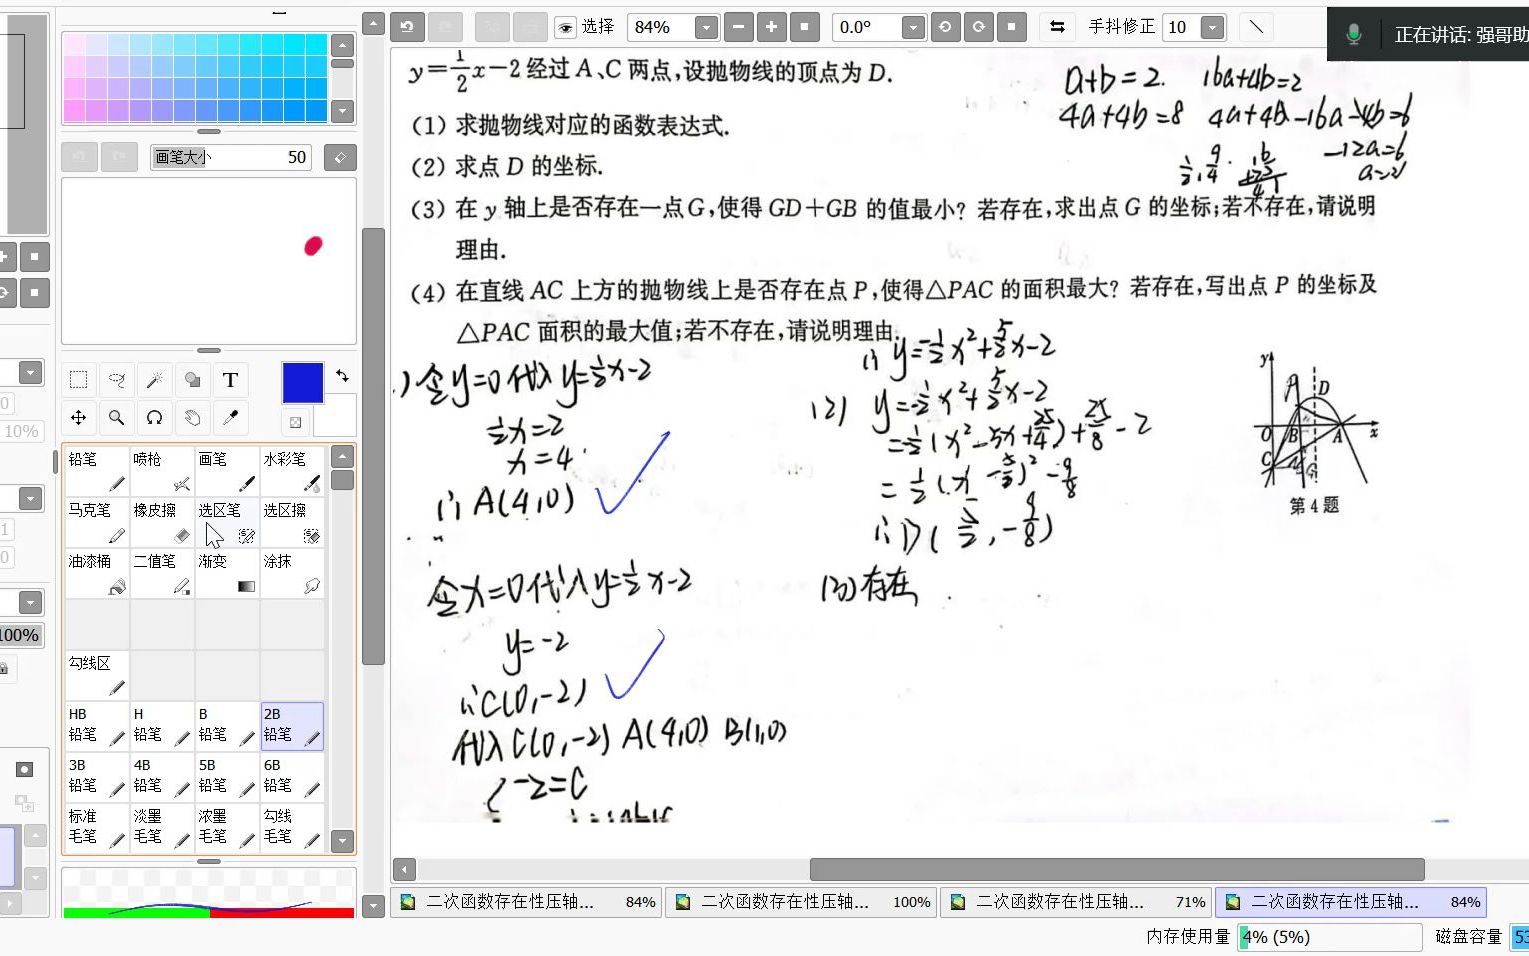 选择
84%
0.0°
手抖修正 10
正在讲话: 强哥助
画笔大小 50
y=1/2x-2经过A、C两点,设抛物线的顶点为D.
(1) 求抛物线对应的函数表达式.
(2) 求点 D 的坐标.
(3) 在 y 轴上是否存在一点G,使得GD+GB 的值最小? 若存在,求出点 G 的坐标;若不存在,请说明
理由.
(4) 在直线 AC 上方的抛物线上是否存在点 P,使得△PAC 的面积最大? 若存在,写出点 P 的坐标及
△PAC 面积的最大值;若不存在,请说明理由.
a+b=2. 16a+4b=2
4a+4b=8
-12a=6
令y=0代入y=1/2x-2
1/2x=2
x=4
∴A(4,0)
令x=0代入y=1/2x-2
y=-2
∴C(0,-2)
代入C(0,-2) A(4,0) B(1,0)
-2=C
∴y=-1/2x²+5/2x-2
(2) y=-1/2x²+5/2x-2
=-1/2(x²-5x+25/4)+25/8-2
∴D(5/2,-9/8)
(3)存在
y
P
D
O B A x
C
G
第4题
T
10%
100%
铅笔 喷枪 画笔 水彩笔
马克笔 橡皮擦 选区笔 选区擦
油漆桶 二值笔 渐变 涂抹
勾线区
HB 铅笔 H 铅笔 B 铅笔 2B 铅笔
3B 铅笔 4B 铅笔 5B 铅笔 6B 铅笔
标准 毛笔 淡墨 毛笔 浓墨 毛笔 勾线 毛笔
二次函数存在性压轴... 84%
二次函数存在性压轴... 100%
二次函数存在性压轴... 71%
二次函数存在性压轴... 84%
内存使用量 4% (5%)
磁盘容量 53